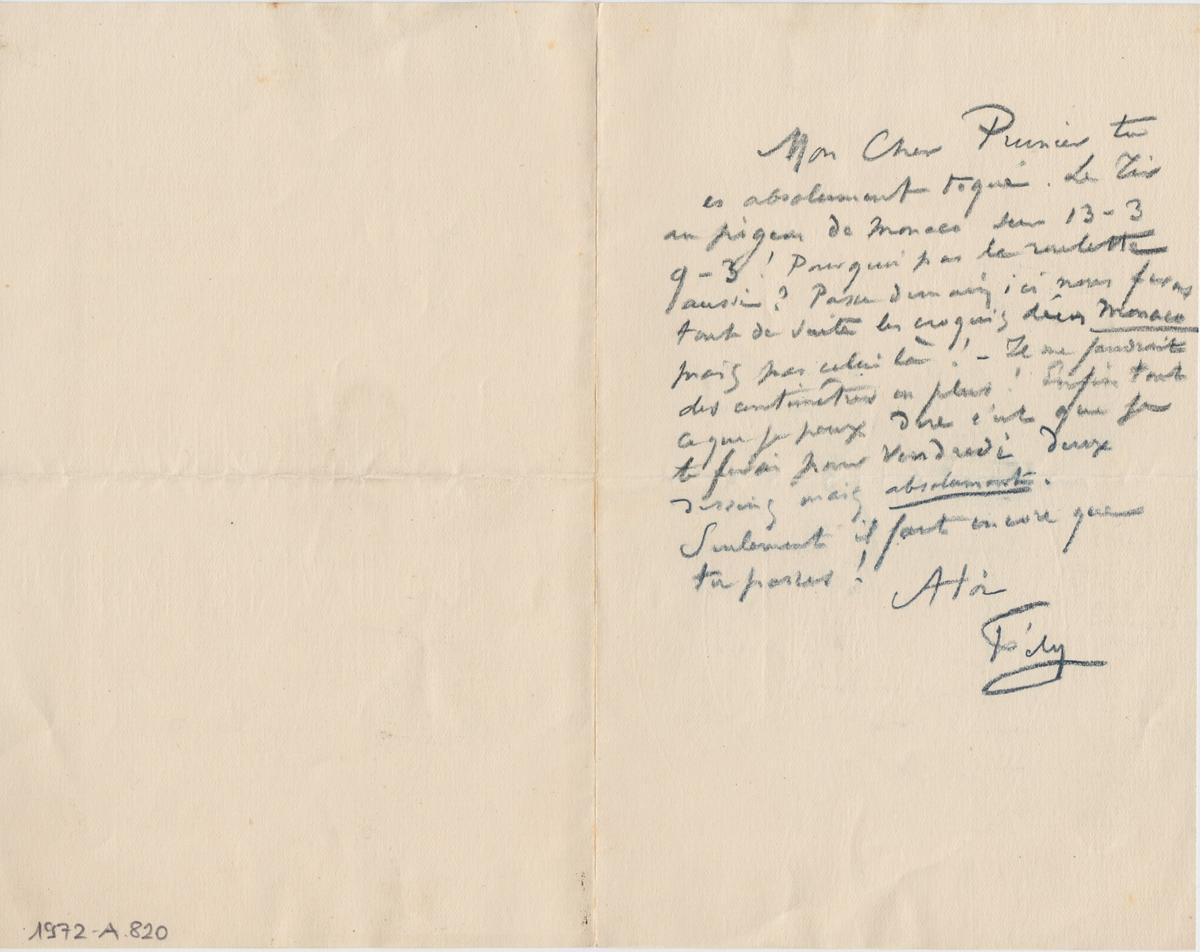 Mon Cher Prunier tu
es absolument toqué. Le Tir
au pigeon de Monaco sur 13-3
9-3! Pourquoi pas la roulette
aussi? Passe demain, ici nous ferons
tout de suite les croquis décor Monaco
mais pas celui là! - Il me faudrait
des centimètres en plus! Enfin tout
ce que je peux dire c'est que je
te ferai pour vendredi deux
dessins mais absolument.
Seulement il faut encore que
tu passes!
A toi
1972-A.820